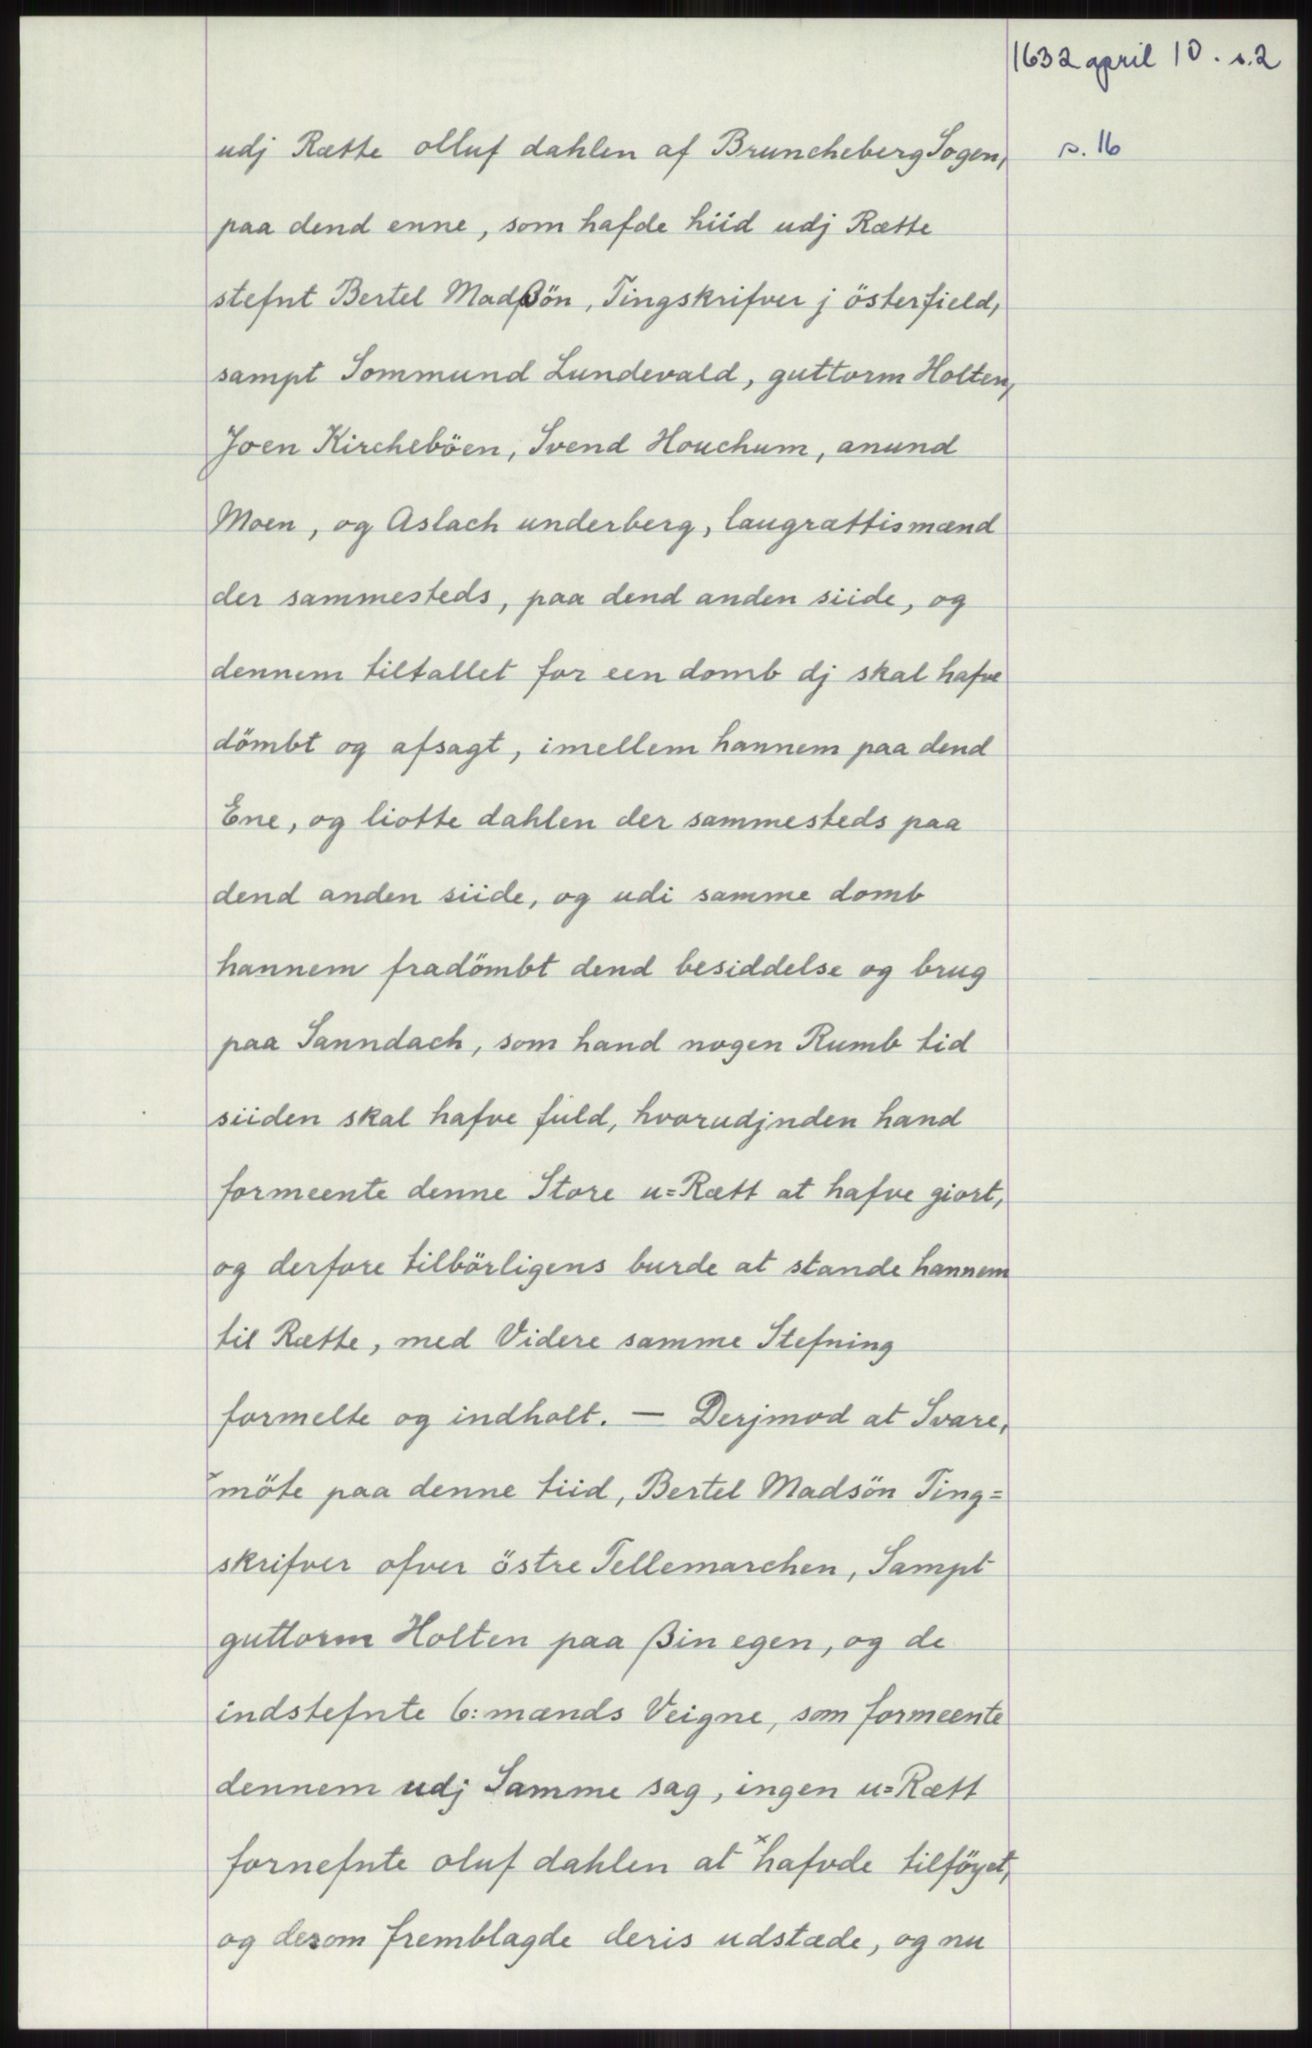 1632 april 10. s.2
udj Rætte olluf dahlen af Bruncheberg Sogen, s. 16
paa dend enne, som hafde hiid udj Rætte
stefnt Bertel Madßön, Tingskrifver j österfield,
sampt Sommund Lundevald, guttorm Holten,
Joen Kircheböen, Svend Houchum, anund
Moen, og Aslach underberg, laugrættismænd
der sammesteds, paa dend anden siide, og
dennem tiltallet for een domb dj skal hafve
dömbt og afsagt, imellem hannem paa dend
Ene, og liotte dahlen der sammesteds paa
dend anden siide, og udi samme domb
hannem fradömbt dend besiddelse og brug
paa Sanndach, som hand nogen Rumb tid
siiden skal hafve fuld, hvorudjnden hand
formeente denne Store u=Rætt at hafve giort,
og derfore tilbörligens burde at stande hannem
til Rætte, med Videre samme Stefning
formelte og indholt. — Derjmod at Svare,
ˣmöte paa denne tiid, Bertel Madsön Ting=
skrifver ofver östre Tellemarchen, Sampt
guttorm Holten paa ßin egen, og de
indstefnte 6: mænds Veigne, som formeente
dennem udj Samme sag, ingen u=Rætt
fornefnte oluf dahlen at ˣhafvde tilföyet,
og desom fremblagde deris udstæde, og nu